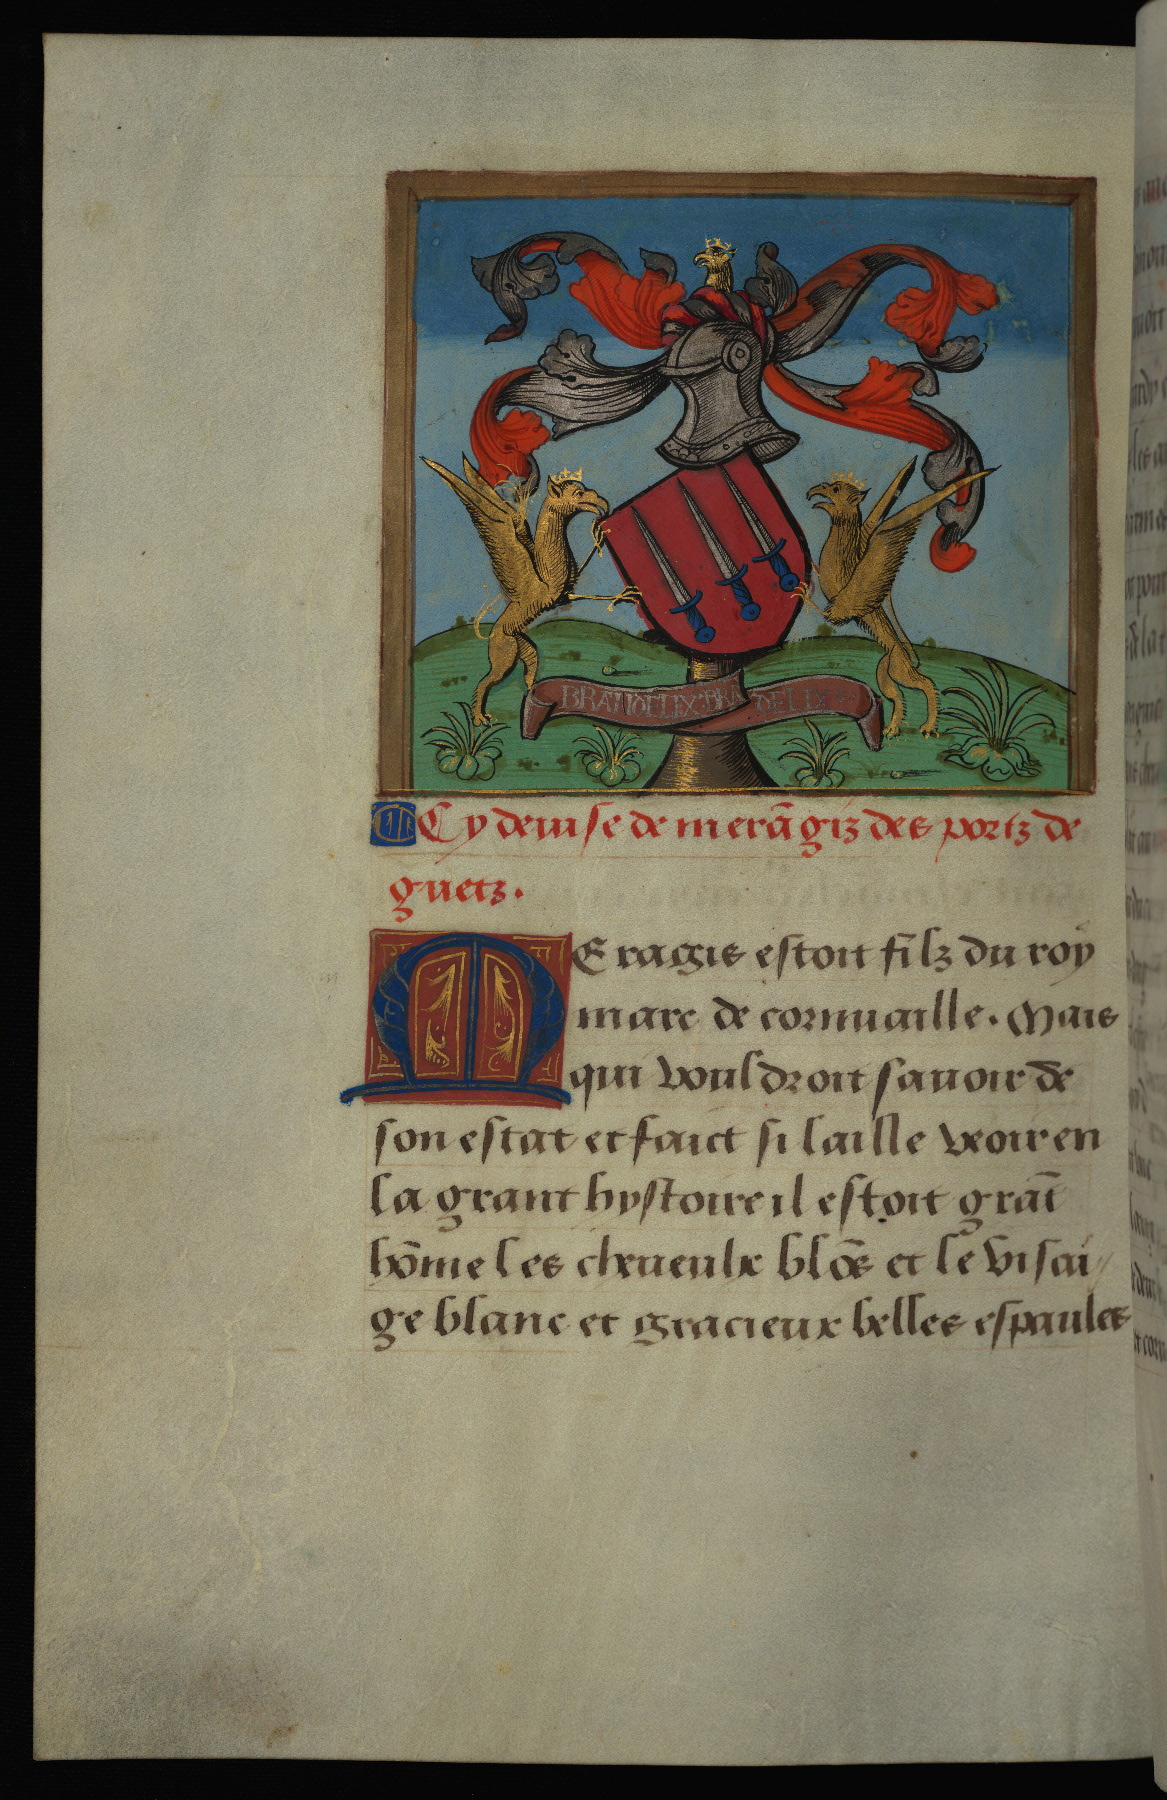 BRANDELIX·BRA DELIX
Cy deuise de merãgiz des portz de
guetz.
MEragis estoit filz du roy
marc de cornuaille. Mais
qui vouldroit sauoir de
son estat et faict si laille veoir en
la grant hystoire il estoit grãt
hõme les cheueulx blõs et le visai
ge blanc et gracieux belles espaules